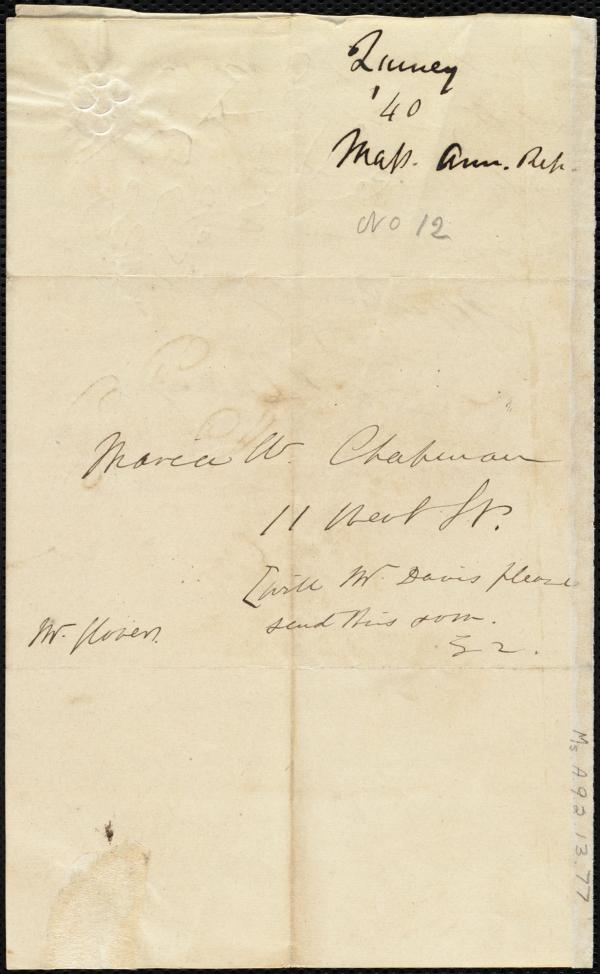 Quincy
'40
Mass. Ann. Rep.
No 12
Maria W. Chapman
11 West St.
[will Mr. Davis please
send this
Mr. Glover.
Ms. A.9.2.13.77